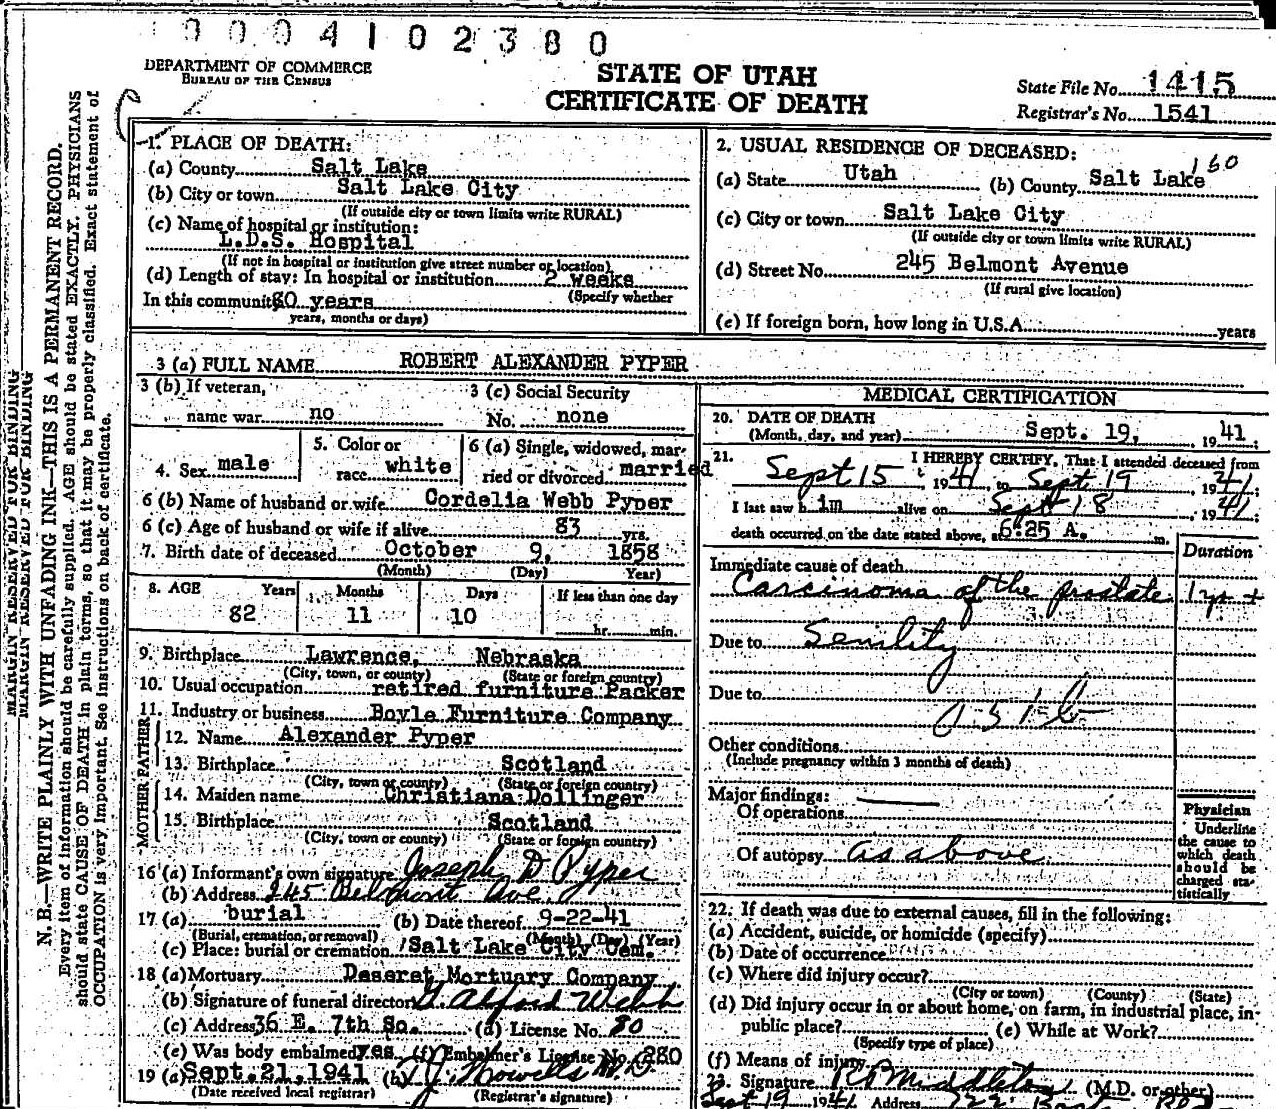 0004102380
DEPARTMENT OF COMMERCE
BUREAU OF THE CENSUS
STATE OF UTAH
CERTIFICATE OF DEATH
State File No. 1415
Registrar's No. 1541
MARGIN RESERVED FOR BINDING
MARGIN RESERVED FOR BINDING
N. B.—WRITE PLAINLY WITH UNFADING INK—THIS IS A PERMANENT RECORD.
Every item of information should be carefully supplied. AGE should be stated EXACTLY. PHYSICIANS
should state CAUSE OF DEATH in plain terms, so that it may be properly classified. Exact statement of
OCCUPATION is very important. See instructions on back of certificate.
1. PLACE OF DEATH:
(a) County Salt Lake
(b) City or town Salt Lake City
(If outside city or town limits write RURAL)
(c) Name of hospital or institution:
L.D.S. Hospital
(If not in hospital or institution give street number or location)
(d) Length of stay: In hospital or institution 2 weeks
(Specify whether
In this community 80 years
years, months or days)
2. USUAL RESIDENCE OF DECEASED:
160
(a) State Utah (b) County Salt Lake
(c) City or town Salt Lake City
(If outside city or town limits write RURAL)
(d) Street No. 245 Belmont Avenue
(If rural give location)
(e) If foreign born, how long in U.S.A. years
3 (a) FULL NAME ROBERT ALEXANDER PYPER
3 (b) If veteran,
name war no
3 (c) Social Security
No. none
4. Sex male
5. Color or
race white
6 (a) Single, widowed, mar-
ried or divorced married
6 (b) Name of husband or wife Cordelia Webb Pyper
6 (c) Age of husband or wife if alive 83 yrs.
7. Birth date of deceased October 9, 1858
(Month) (Day) Year)
8. AGE Years Months Days If less than one day
82 11 10 hr. min.
9. Birthplace Lawrence, Nebraska
(City, town, or county) (State or foreign country)
10. Usual occupation retired furniture Packer
11. Industry or business Boyle Furniture Company
FATHER
12. Name Alexander Pyper
13. Birthplace Scotland
(City, town or county) (State or foreign country)
MOTHER
14. Maiden name Christiana Dollinger
15. Birthplace Scotland
(City, town or county) (State or foreign country)
16 (a) Informant's own signature Joseph D Pyper
(b) Address 245 Belmont Ave.
17 (a) burial (b) Date thereof 9-22-41
(Burial, cremation, or removal) (Month) (Day) (Year)
(c) Place: burial or cremation Salt Lake City Cem.
18 (a) Mortuary Deseret Mortuary Company
(b) Signature of funeral director
(c) Address 36 E. 7th So. (d) License No. 80
(e) Was body embalmed yes (f) Embalmer's License No. 280
19 (a) Sept. 21, 1941 (b)
(Date received local registrar) (Registrar's signature)
MEDICAL CERTIFICATION
20. DATE OF DEATH
(Month, day, and year) Sept. 19, 1941;
21. I HEREBY CERTIFY, That I attended deceased from
Sept 15, 1941, to Sept 19, 1941;
I last saw h im alive on Sept 18, 1941;
death occurred on the date stated above, at 6:25 A. m.
Duration
Immediate cause of death
Carcinoma of the prostate 1 yr +
Due to Senility
Due to
Other conditions
(Include pregnancy within 3 months of death)
Major findings:
Of operations
Of autopsy as above
Physician
Underline
the cause to
which death
should be
charged sta-
tistically
22. If death was due to external causes, fill in the following:
(a) Accident, suicide, or homicide (specify)
(b) Date of occurrence
(c) Where did injury occur?
(City or town) (County) (State)
(d) Did injury occur in or about home, on farm, in industrial place, in-
public place? (e) While at Work?
(Specify type of place)
(f) Means of injury
23. Signature R P Middleton (M.D. or other)
Sept 19 1941 Address